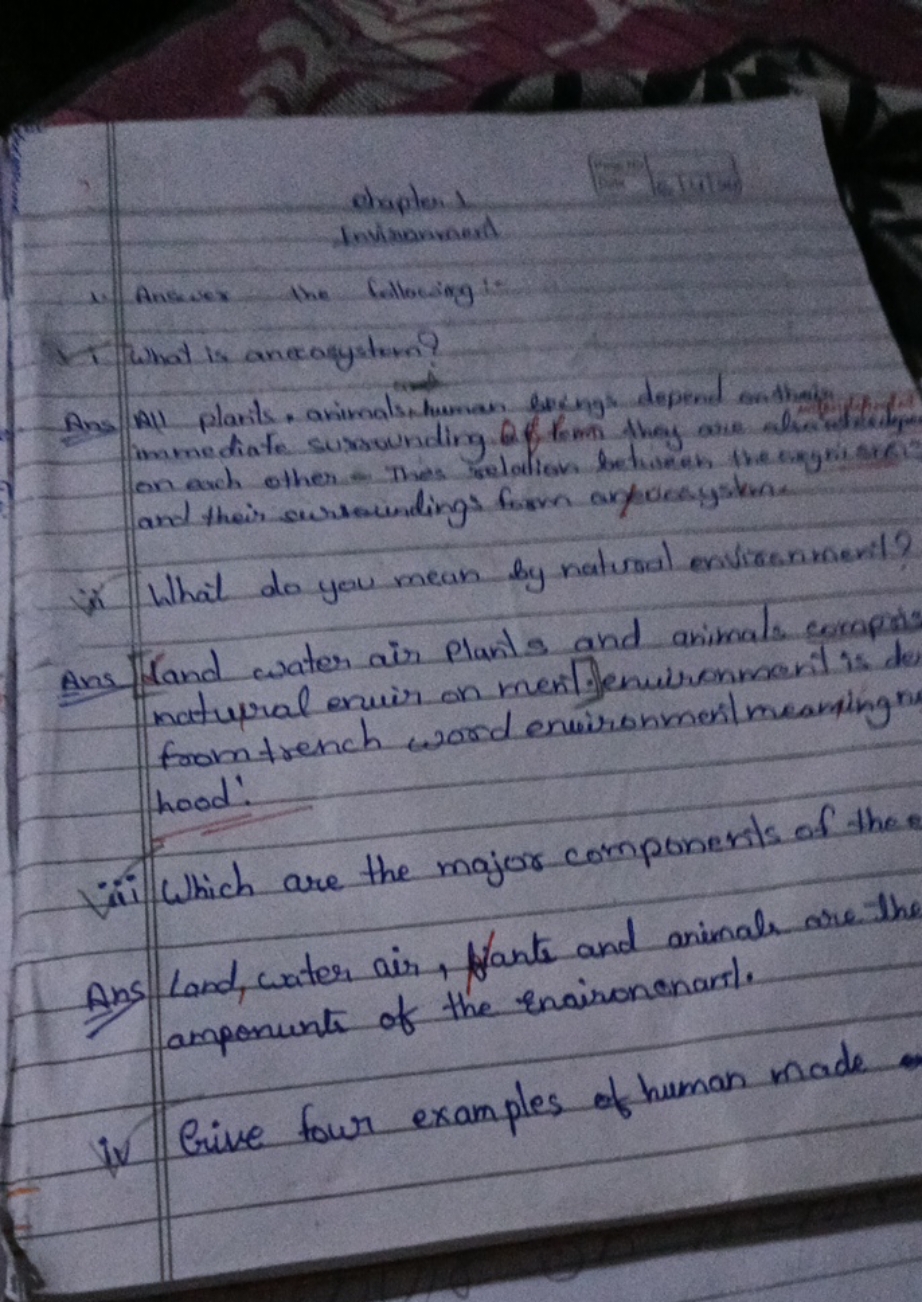 Chapter 1
Environment
1. Answer the following :-
i What is an ecosystem?
Ans All plants, animals, human beings depend on their
immediate surrounding they are also
on each other This relation between the
and their surroundings form an ecosystem.
ii What do you mean by natural environment?
Ans Land water air Plants and animals
natupral enuir on ment. enuironment is
from french word enuironment meaning
hood'.
iii Which are the major components of the
Ans Land, water air, plants and animals are the
amponunts of the
iv Give four examples of human made